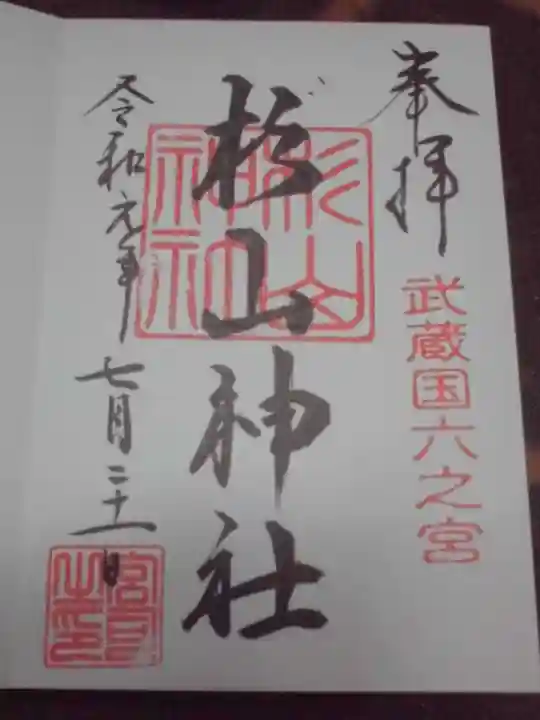 奉拝
武蔵国六之宮
杉山神社
杉山
神社
令和元年七月二十一日
宮司
之印